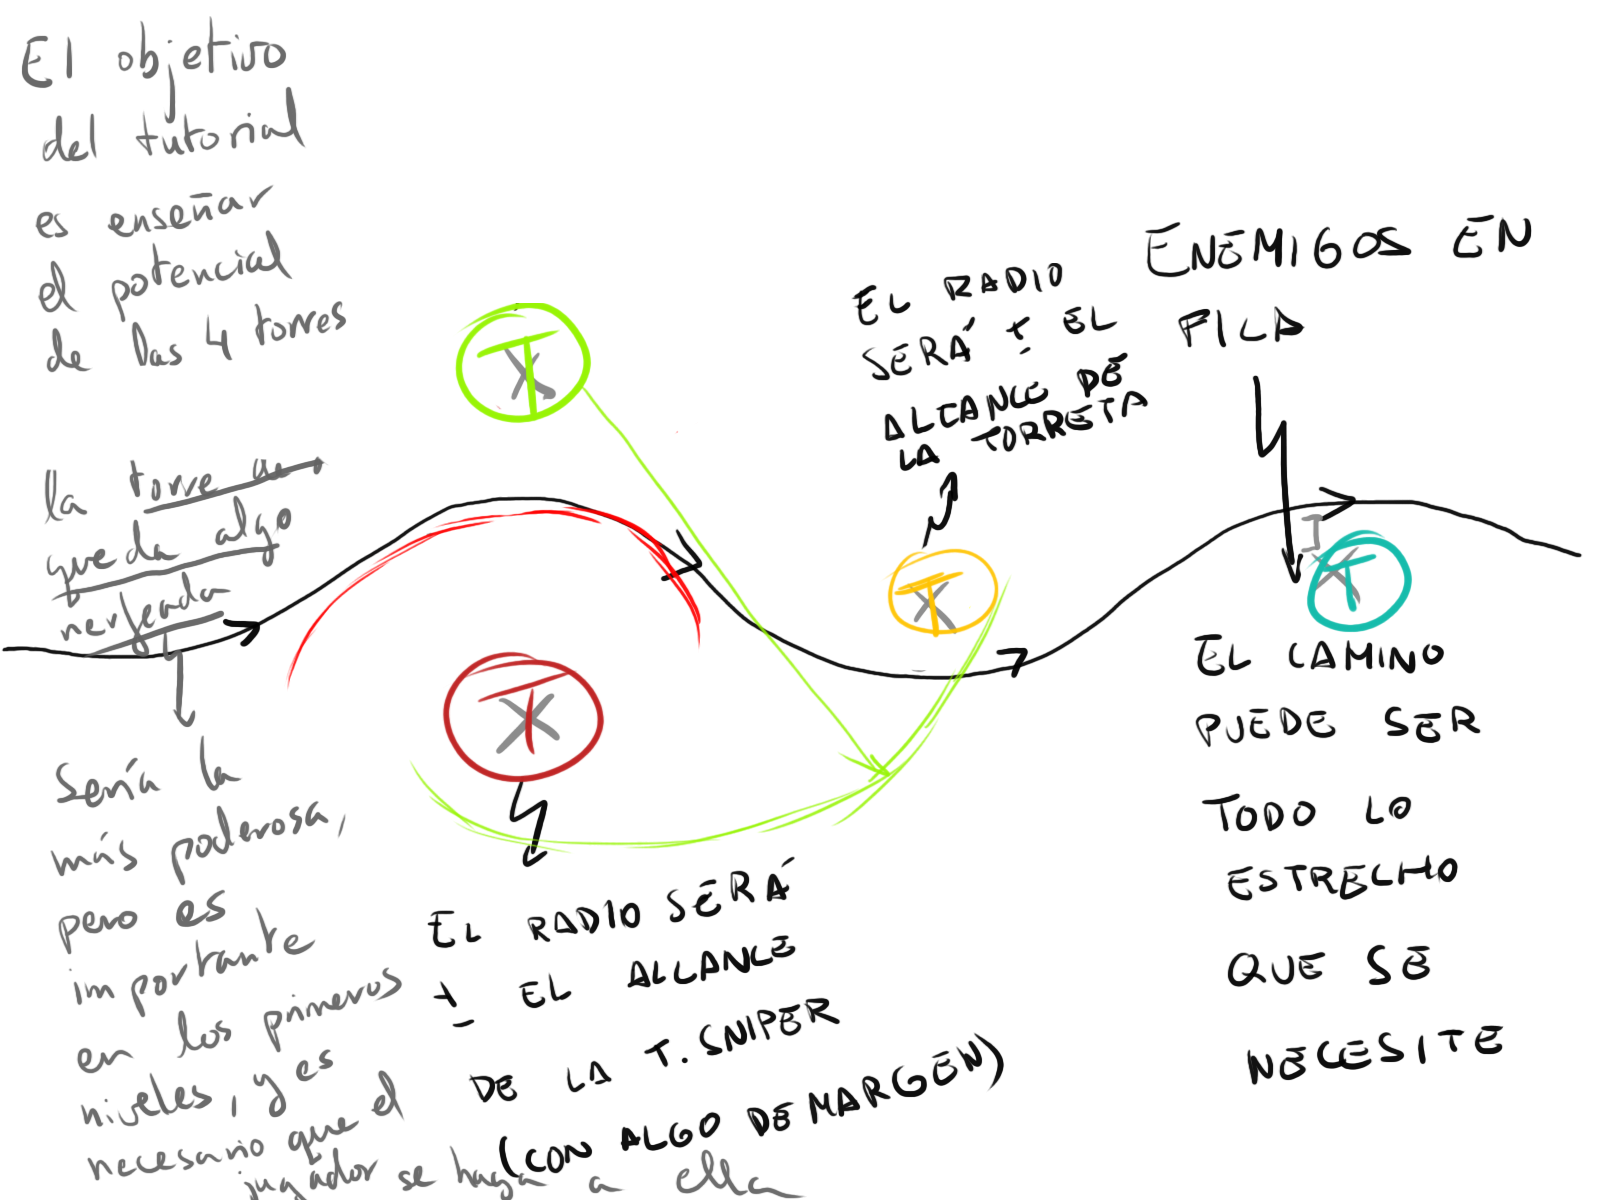 El objetivo
del tutorial
es enseñar
el potencial
de las 4 torres
la torre
queda algo
nerfeada
Sería la
más poderosa,
pero es
importante
en los primeros
niveles, y es
necesario que el
jugador se haga a ella
T
T
EL RADIO SERÁ
± EL ALCANCE
DE LA T. SNIPER
(CON ALGO DE MARGEN)
EL RADIO
SERÁ ± EL
ALCANCE DE
LA TORRETA
T
ENEMIGOS EN
FILA
T
EL CAMINO
PUEDE SER
TODO LO
ESTRECHO
QUE SE
NECESITE